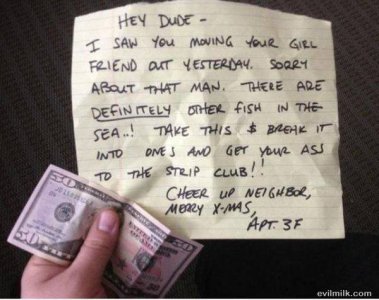 HEY DUDE -
I SAW YOU MOVING YOUR GIRL
FRIEND OUT YESTERDAY. SORRY
ABOUT THAT MAN. THERE ARE
DEFINITELY OTHER FISH IN THE
SEA..! TAKE THIS $ BREAK IT
INTO ONES AND GET YOUR ASS
TO THE STRIP CLUB!!
CHEER UP NEIGHBOR,
MERRY X-MAS,
APT. 3F
50
50
evilmilk.com